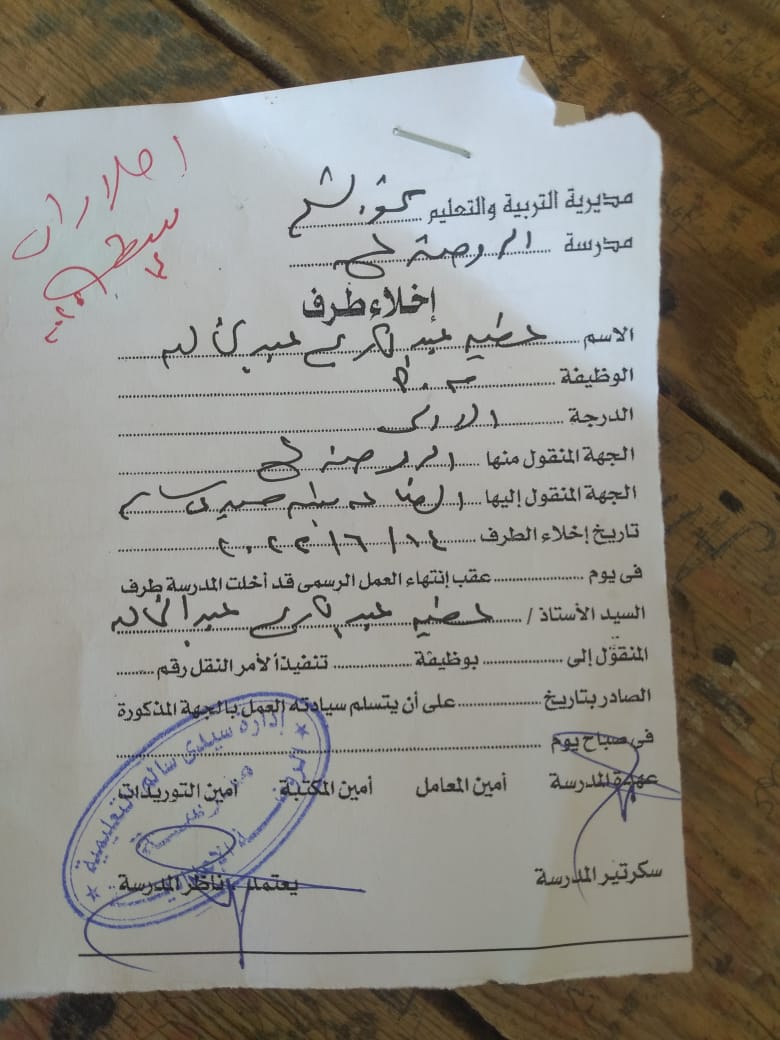 مديرية التربية والتعليم كفر الشيخ
مدرسة الروضة ع
إخلاء طرف
الاسم عطيه عبد
الوظيفة
الدرجة الاولى
الجهة المنقول منها الروضة ع
الجهة المنقول إليها سيدى سالم
تاريخ إخلاء الطرف ١٤/ ٦/ ٢٠٢٢
فى يوم عقب إنتهاء العمل الرسمى قد أخلت المدرسة طرف
السيد الأستاذ / عطيه عبد
المنقول إلى بوظيفة تنفيذاً لأمر النقل رقم
الصادر بتاريخ على أن يتسلم سيادته العمل بالجهة المذكورة
فى صباح يوم
عهدة المدرسة أمين المعامل أمين المكتبة أمين التوريدات
سكرتير المدرسة يعتمد ناظر المدرسة
إدارة سيدى سالم التعليمية